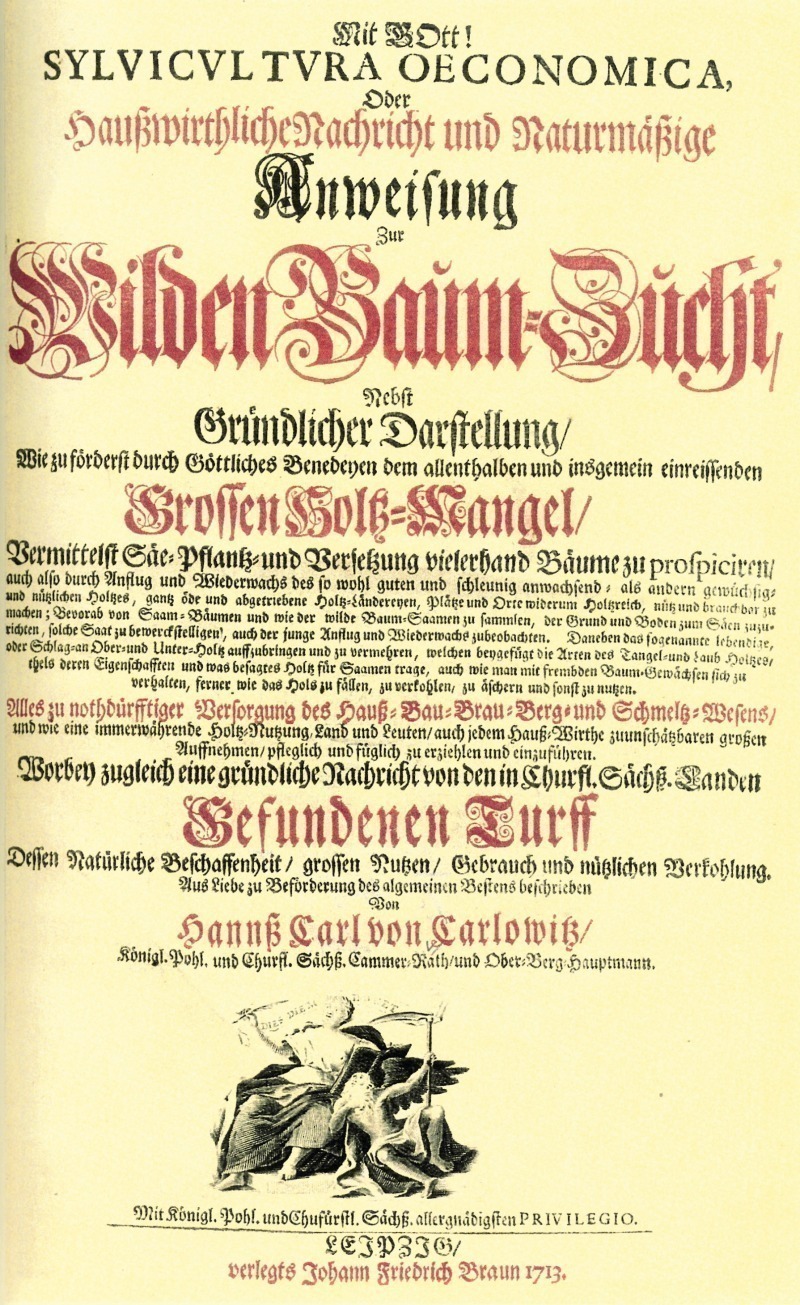 Mit GOtt!
SYLVICVLTVRA OECONOMICA,
Oder
Haußwirthliche Nachricht und Naturmäßige
Anweisung
Zur
Wilden Baum-Zucht,
Nebst
Gründlicher Darstellung/
Wie zu förderst durch Göttliches Benedeyen dem allenthalben und insgemein einreissenden
Grossen Holtz-Mangel/
Vermittelst Säe-Pflantz-und Versetzung vielerhand Bäume zu prospiciren/
auch also durch Anflug und Wiederwachs des so wohl guten und schleunig anwachsend, als andern gewüchsig,
und nützlichen Holtzes, gantz öde und abgetriebene Holtz-Ländereyen, Plätze und Orte widerum Holtzreich, nütz und brauchbar zu
machen; Bevorab von Saam-Bäumen und wie der wilde Baum-Saamen zu sammlen, der Grund und Boden zum Säen zuzu-
richten, solche Saat zu bewerckstelligen, auch der junge Anflug und Wiederwachs zubeobachten. Daneben das sogenannte lebendige,
oder Schlag-an Ober-und Unter-Holtz auffzubringen und zu vermehren, welchen beygefügt die Arten des Tangel-und Laub Holtzes/
theils deren Eigenschafften und was besagtes Holtz für Saamen trage, auch wie man mit frembden Baum-Gewächsen sich zu
verhalten, ferner wie das Holz zu fällen, zu verkohlen, zu äschern und sonst zu nutzen.
Alles zu nothdürfftiger Versorgung des Hauß-Bau-Brau-Berg-und Schmeltz-Wesens/
und wie eine immerwährende Holtz-Nutzung, Land und Leuten/ auch jedem Hauß-Wirthe zuunschätzbaren großen
Auffnehmen/ pfleglich und füglich zu erziehlen und einzuführen.
Worbey zugleich eine gründliche Nachricht von den in Churfl. Sächß. Landen
Gefundenen Turff
Dessen Natürliche Beschaffenheit/ grossen Nutzen/ Gebrauch und nützlichen Verkohlung.
Aus Liebe zu Beförderung des algemeinen Bestens beschrieben
Von
Hannß Carl von Carlowitz/
Königl. Pohl. und Churfl. Sächß. Cammer-Rath/ und Ober-Berg-Hauptmann.
DIES DIEM
Mit Königl. Pohl. und Chufürstl. Sächß. allergnädigsten PRIVILEGIO.
LEIPZIG/
verlegts Johann Friedrich Braun 1713.